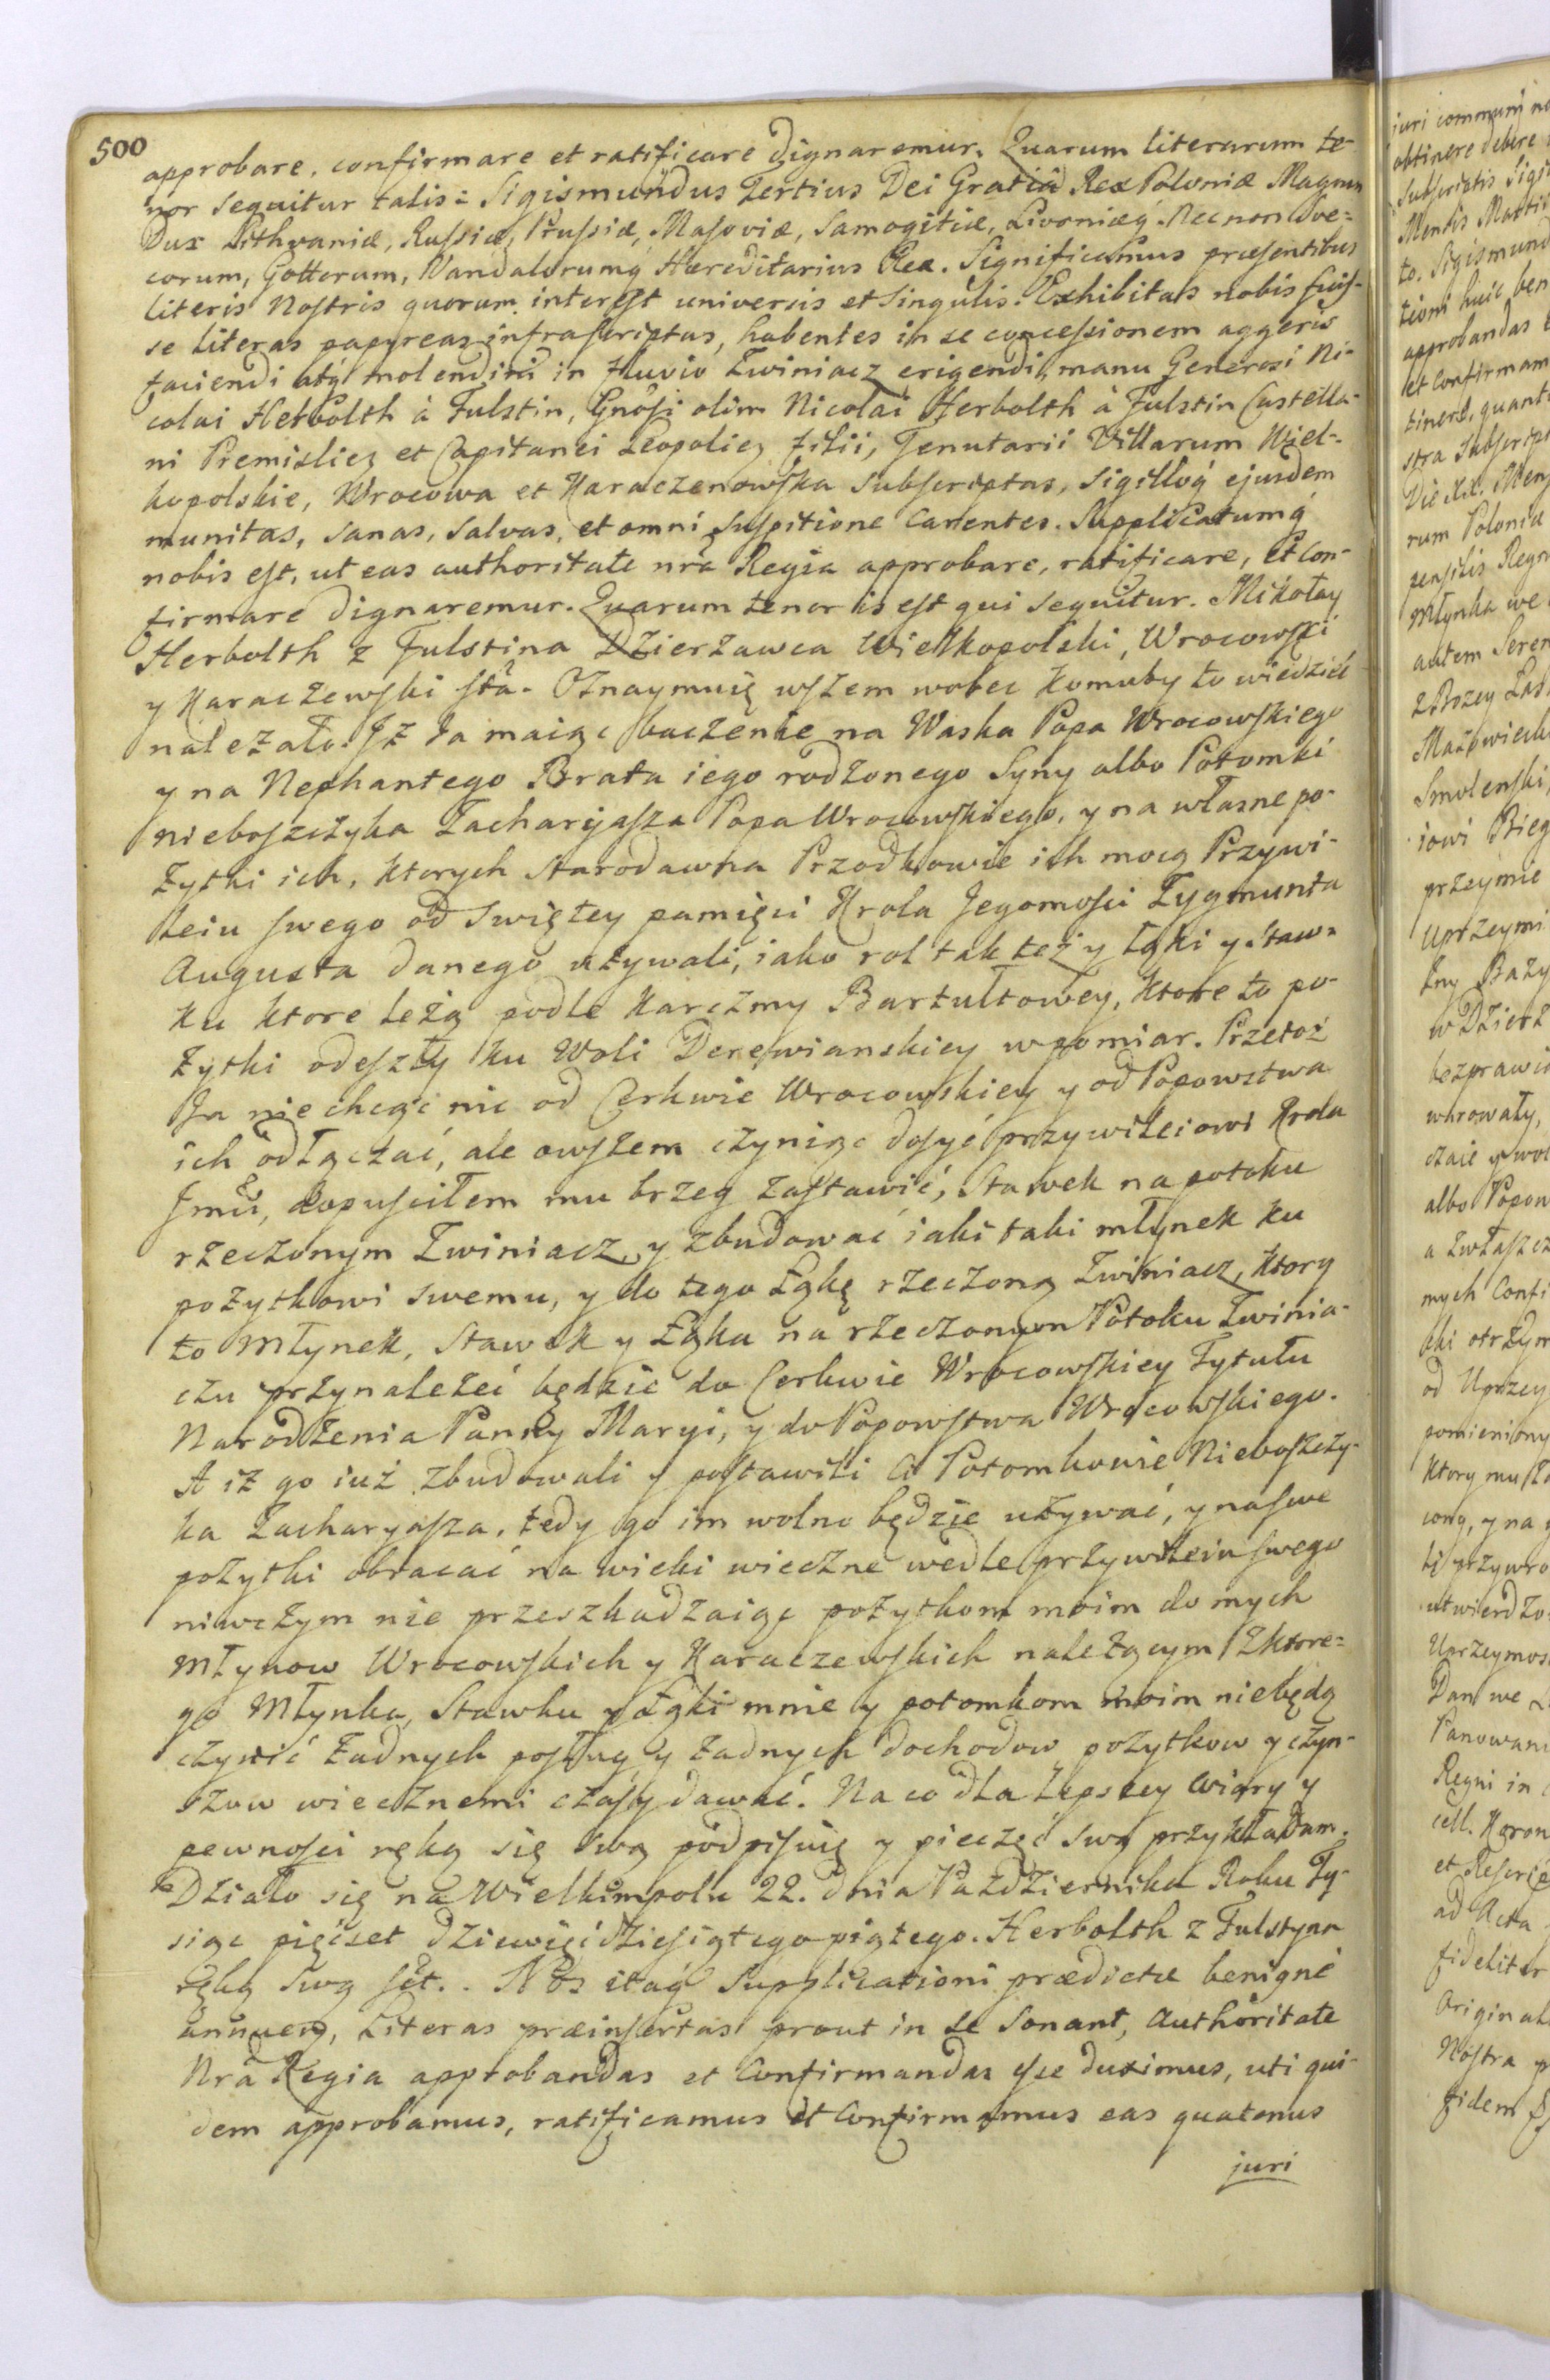 500
approbare, confirmare et ratificare dignaremur. Quarum literarum te-
nor sequitur talis: Sigismundus Tertius Dei Gratiâ Rex Poloniæ Magnus
Dux Lithvaniæ, Russiæ, Prussiæ, Masoviæ, Samogitiæ, Livoniæq́. Necnon Sve-
corum, Gottorum, Vandalorumq́ Hæreditarius Rex. Significamus præsentibus
literis Nostris quorum interest universis et singulis. Exhibitas nobis fuis-
se literas papyreas infrascriptas, habentes in se concessionem aggeris
faciendi atq́ molendini in fluvio Zwiniacz erigendi, manu Generosi Ni-
colai Herbolth à Fulstin, Gnosi olim Nicolai Herbolth à Fulstin Castella-
ni Premisliez et Capitanei Leopoliez filii, Tenutarii Villarum Wiel-
kopolskie, Wrocowa et Karaczenowska subscriptas, sigilloq́ ejusdem
munitas, sanas, salvas, et omni suspitione carentes. Supplicatumq́
nobis est, ut eas authoritate nrâ Regia approbare, ratificare, et con-
firmare dignaremur. Quarum tenor is est qui sequitur. Mikołay
Herbolth z Fulstina Dzierżawca Wielkopolski, Wrocowski
y Karaczewski sta. Oznaymuię wszem wobec komuby to wiedzieć
należało. Iż Ja maiąc baczenie na Waska Popa Wrocowskiego
y na Nephantego Brata iego rodzonego Syny albo Potomki
nieboszczyka Zacharyasza Popa Wrocowskiego, y na własne po-
żytki ich, ktorych starodawna Przodkowie ich mocą Przywi-
leiu swego od swiętey pamięci Krola Jegomosci Zygmunta
Augusta danego używali, iako rol tak też y łąki y staw-
ku ktore leżą podle karczmy Bartułtowey, ktore to po-
żytki odeszły ku Woli Derewianskiey w pomiar. Przetoż
Ja nie chcąc nic od Cerkwie Wrocowskiey y od Popowstwa
ich odłączać, ale owszem czyniąc dosyć przywileiowi Krola
Jmći, dopusciłem mu brzeg zastawić, stawek na potoku
rzeczonym Zwiniacz y zbudować iaki taki młynek ku
pożytkowi swemu, y do tego łąkę rzeczoną Zwiniacz, ktory
to Młynek, Stawek y Łąka na rzeczonym Potoku Zwinia-
czu przynależeć będzie do Cerkwie Wrocowskiey Tytułu
Narodzenia Panny Maryi, y do Popowstwa Wrocowskiego.
A iż go iuż zbudowali y postawili Ci Potomkowie Nieboszczy-
ka Zacharyasza, tedy go im wolno będzie używać, y na swe
pożytki obracać na wieki wieczne wedle przywileiu swego
niwczym nie przeszkadzaiąc pożytkom moim do mych
Młynow Wrocowskich y Karaczewskich należącym z ktore-
go Młynka, Stawku y Łąki mnie y potomkom moim niebędą
czynić żadnych posług y żadnych dochodow pożytkow y czyn-
szow wiecznemi czasy dawać. Na co dla lepszey wiary y
pewnosci ręką się swą podpisuię y pieczęć swą przykładam.
Działo się na Wielkimpolu 22. dnia Pazdziernika Roku Ty-
siąc pięćset dziewięćdziesiątego piątego. Herbolth z Fulstyna
ręką swą sst.. Nos itaq́ supplicationi prædictæ benignè
annuen̄, Literas præinsertas prout in se sonant, Authoritate
Nrâ Regia approbandas et Confirmandas esse duximus, uti qui-
dem approbamus, ratificamus et Confirmamus eas quatenus
juri
juri communi
obtinere debere
subscriptis
Mensis Martii
to. Sigismund
tioni huic ben
approbandas
et confirmam
tinere, quant
stra subscrip
Die XX. Men
rum Polonia
pensilis Regn
Młynka we
autem Seren
z Bozey Łas
Mazowieck
Smolenski
iowi Bieg
przeymie
Uprzeymi
wdzierż
bezprawi
warowały,
czaie y wol
albo Popow
a zwłaszcz
mych Confi
ki otrzym
od Uprzey
pomieniony
cong, y na
ki przywro
utwierdzo
Uprzeymos
Dan we
Panowani
Regni in
cell. Koron
ad Acta
fideliter
Original
Nostra
fidem